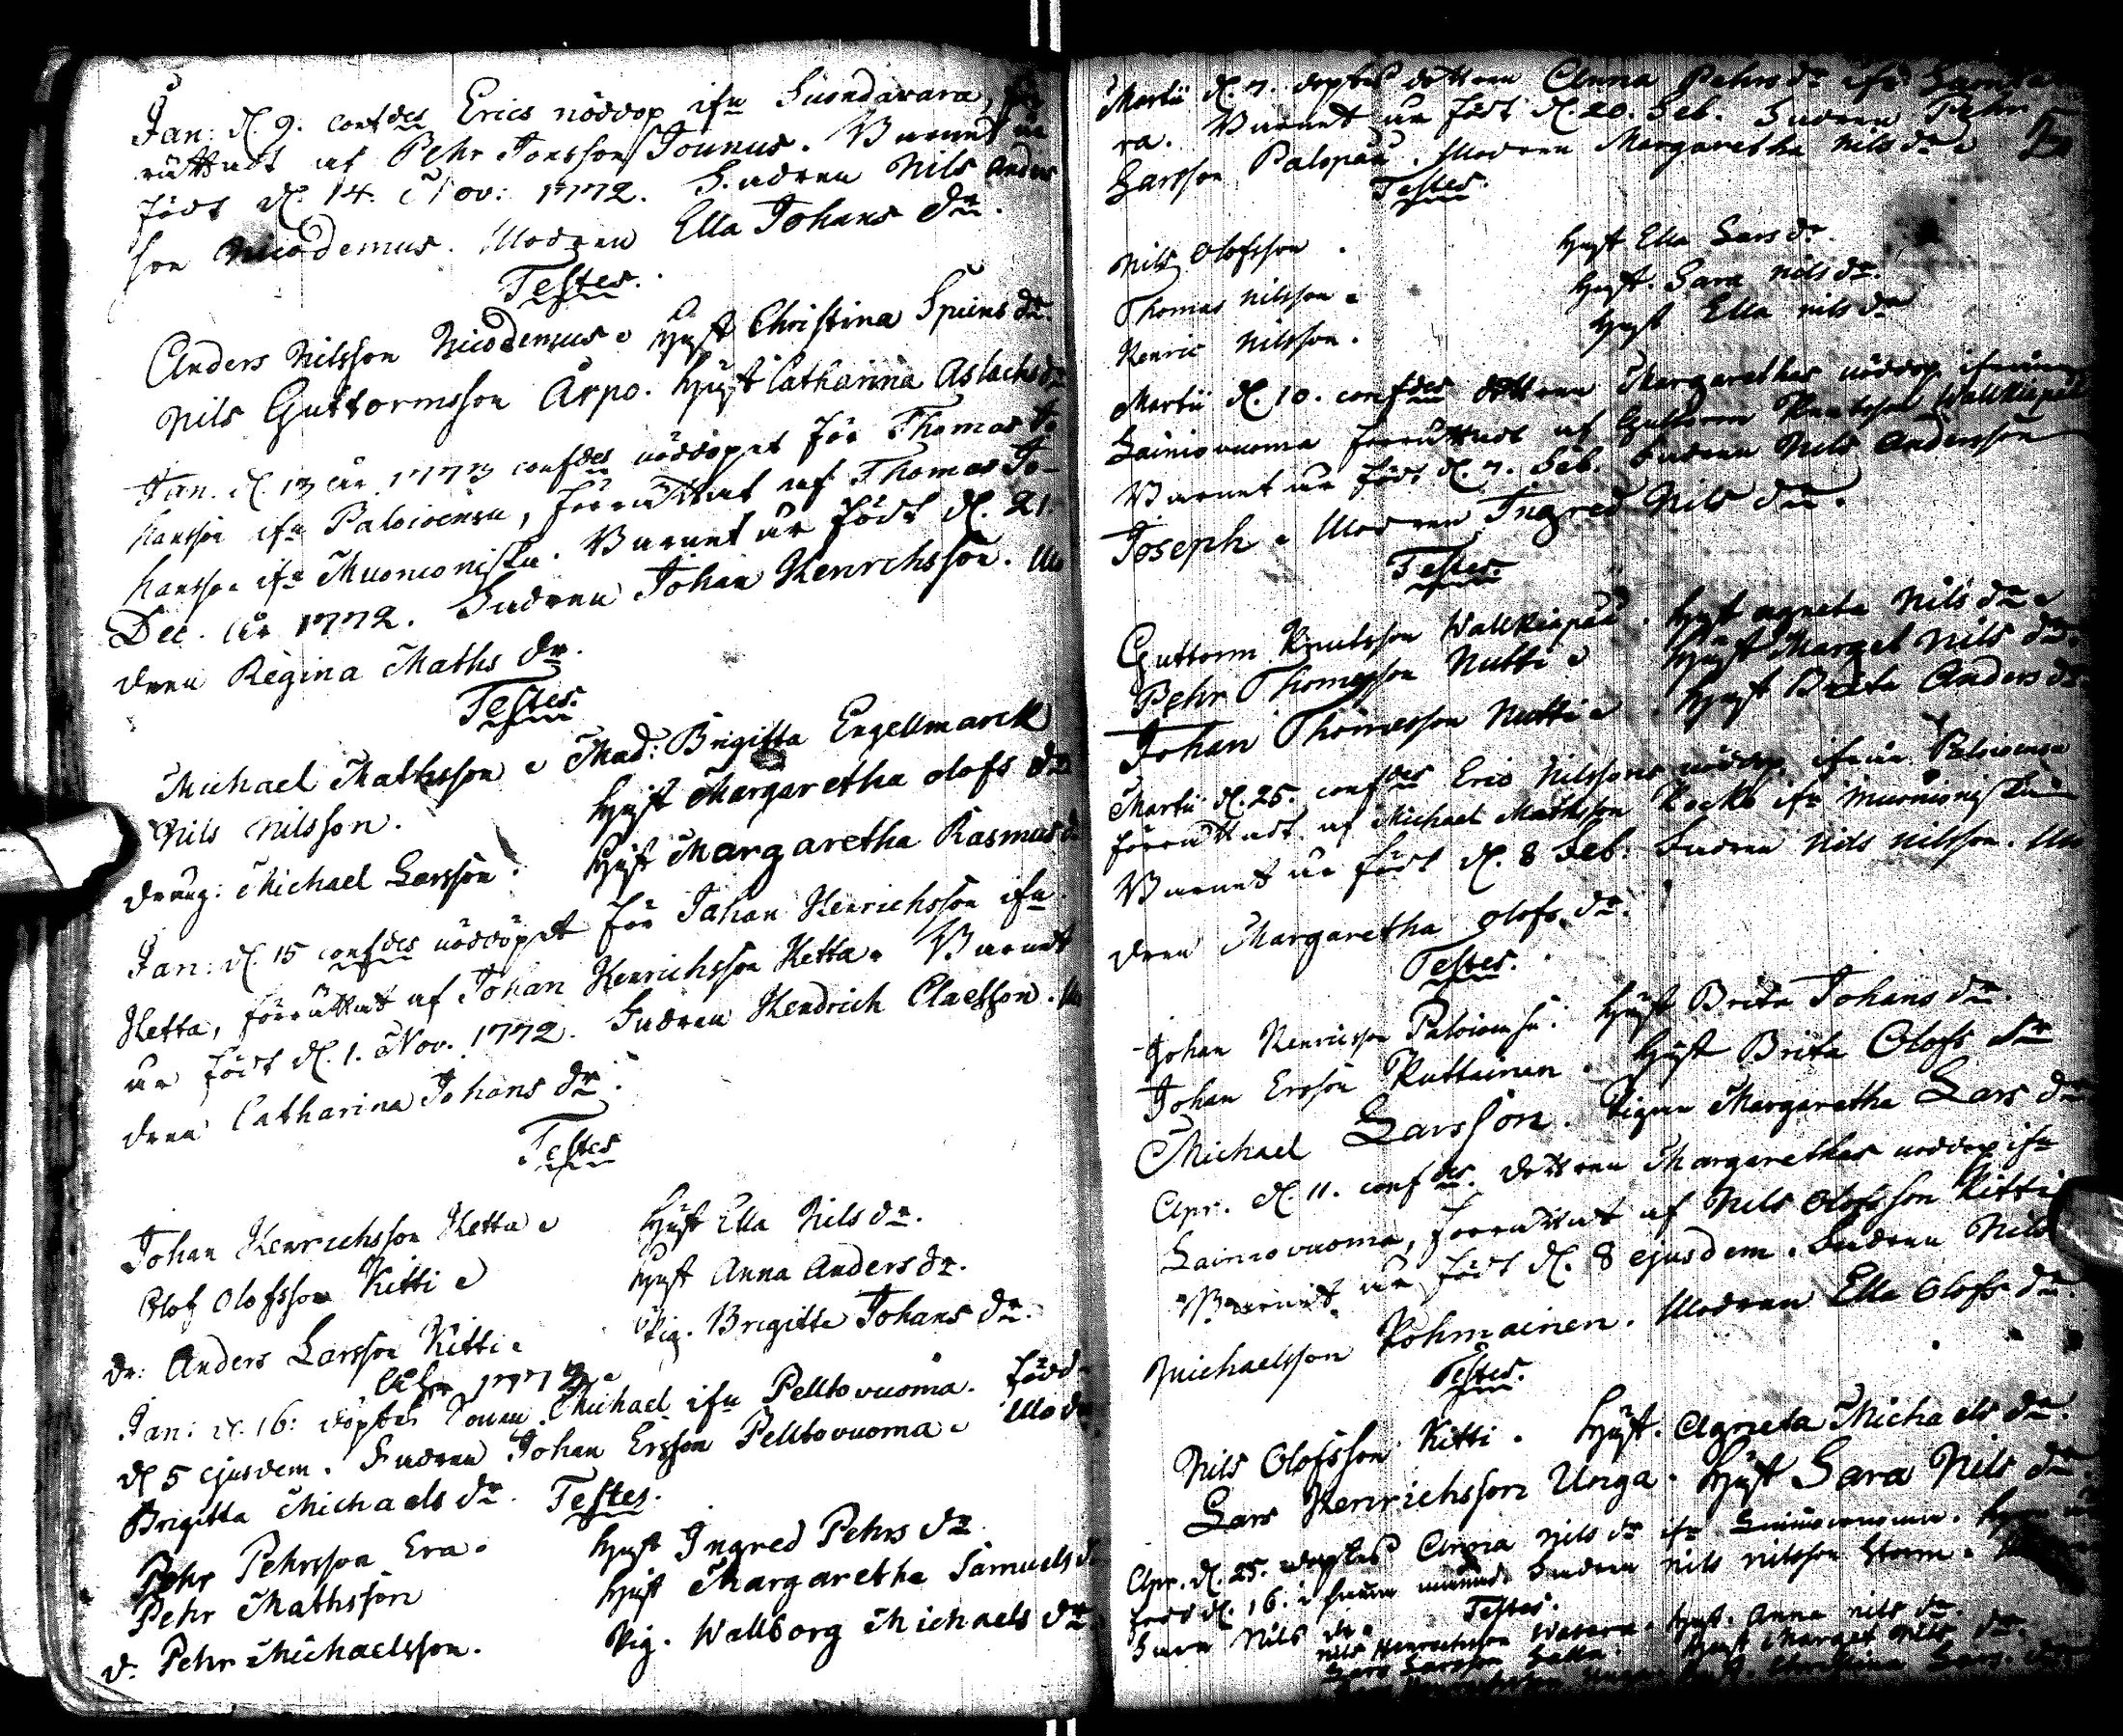 Jan: d. 9. confdes Erics nöddop ifrn Suondavara, för
rättadt af Pehr Jonsson Jounus. Barnet är
födt d. 14. Nov: 1772. Fadren Nils Anders
son Nicodemus. Modren Ella Johans dr.
Testes.
Anders Nilsson Nicodemus. Hust Christina Speins dr.
Nils Guttormsson Arpo. Hust Catharina Aslachs dr
Jan. d. 13 år 1773 confdes nöddöpet för Thomas Jo
hansson ifrn Paloioensu, förrättat af Thomas Jo-
hansson ifrn Muonioniska. Barnet är födt d. 21.
Dec. år 1772. Fadren Johan Henrichsson. Mo
dren Regina Maths dr.
Testes.
Michael Mathsson. Mad: Brigitta Engellmarck
Nils Nilsson. Hust Margaretha Olofs dr
dräng: Michael Larsson. Hust Margaretha Rasmus dr
Jan: d. 15 confdes nöddöpet för Johan Henrichsson ifrn
Hetta, förrättat af Johan Henrichsson Hetta. Barnet
är födt d. 1. Nov. 1772. Fadren Hendrich Claesson. Mo
dren Catharina Johans dr.
Testes
Johan Henrichsson Hetta. Hust Ella Nils dr.
Olof Olofsson Kitti. Hust Anna Anders dr.
dr: Anders Larsson Kitti. Pig. Brigitta Johans dr.
Åhr 1773.
Jan: d. 16: döptes Sonen Michael ifrn Pelltovuoma. född
d 5 ejusdem. Fadren Johan Ersson Pelltovuoma. Modr
Brigitta Michaels dr. Testes.
Pehr Pehrsson Era. Hust Ingred Pehrs dr
Pehr Mathsson Hust Margaretha Samuels dr
d. Pehr Michaelsson. Pig. Wallborg Michaels dr.
Martii d. 7. döptes dottren Anna Pehrs dr ifrn
ra. Barnet är födt d. 20. Feb. Fadren Pehr
Larsson Palopää. Modren Margaretha Nils dr.
Testes.
Nils Olofsson. Hust Ella Lars dr.
Thomas Nilsson. Hust. Sara Nils dr.
Henric Nilsson. Hust Ella Nils dr
Martii d. 10. confdes dottren Margarethas nöddop ifrån
Lainiovuoma förrättadt af Guttorm Knutsson Wallkiapää
Barnet är födt d. 7. Feb. Fadren Nils Andersson
Joseph. Modren Ingred Nils dr.
Testes.
Guttorm Knutsson Wallkiapää. Hust Agneta Nils dr.
Pehr Thomesson Nutti. Hust Margel Nils dr.
Johan Thomesson Nutti. Hust Brita Anders dr.
Martii d. 25. confdes Eric Nilssons nöddop ifrån Paloioensu
förrättadt af Michael Mathsson Kocks ifrn Muonioniska
Barnet är födt d. 8 Feb. Fadren Nils Nilsson. Mo
dren Margaretha Olofs dr.
Testes.
Johan Henricsson Paloioensu. Hust Brita Johans dr.
Johan Ersson Kuttainen. Hust Brita Olofs dr
Michael Larsson. Pigan Margaretha Lars dr
Apr. d. 11. confdes. dottren Margarethas nöddop ifrn
Lainiovuoma, förrättat af Nils Olofsson Kitti
Barnet är födt d. 8 ejusdem. Fadren Nils
Michaelsson Rohmainen. Modren Ella Olofs dr.
Testes.
Nils Olofsson Kitti. Hust. Agneta Michaels dr.
Lars Henrichsson Unga. Hust Sara Nils dr.
Apr. d. 25. döptes Anna Nils dr ifrn Lainiovuoma.
född d. 16. i samma månad. Fadren Nils Nilsson
Sara Nils dr. Testes.
Nils Henrichsson Wasara. Hust. Anna Nils dr.
Lars Larsson Hust Marget Nils dr.
Hust. Christina Lars dr